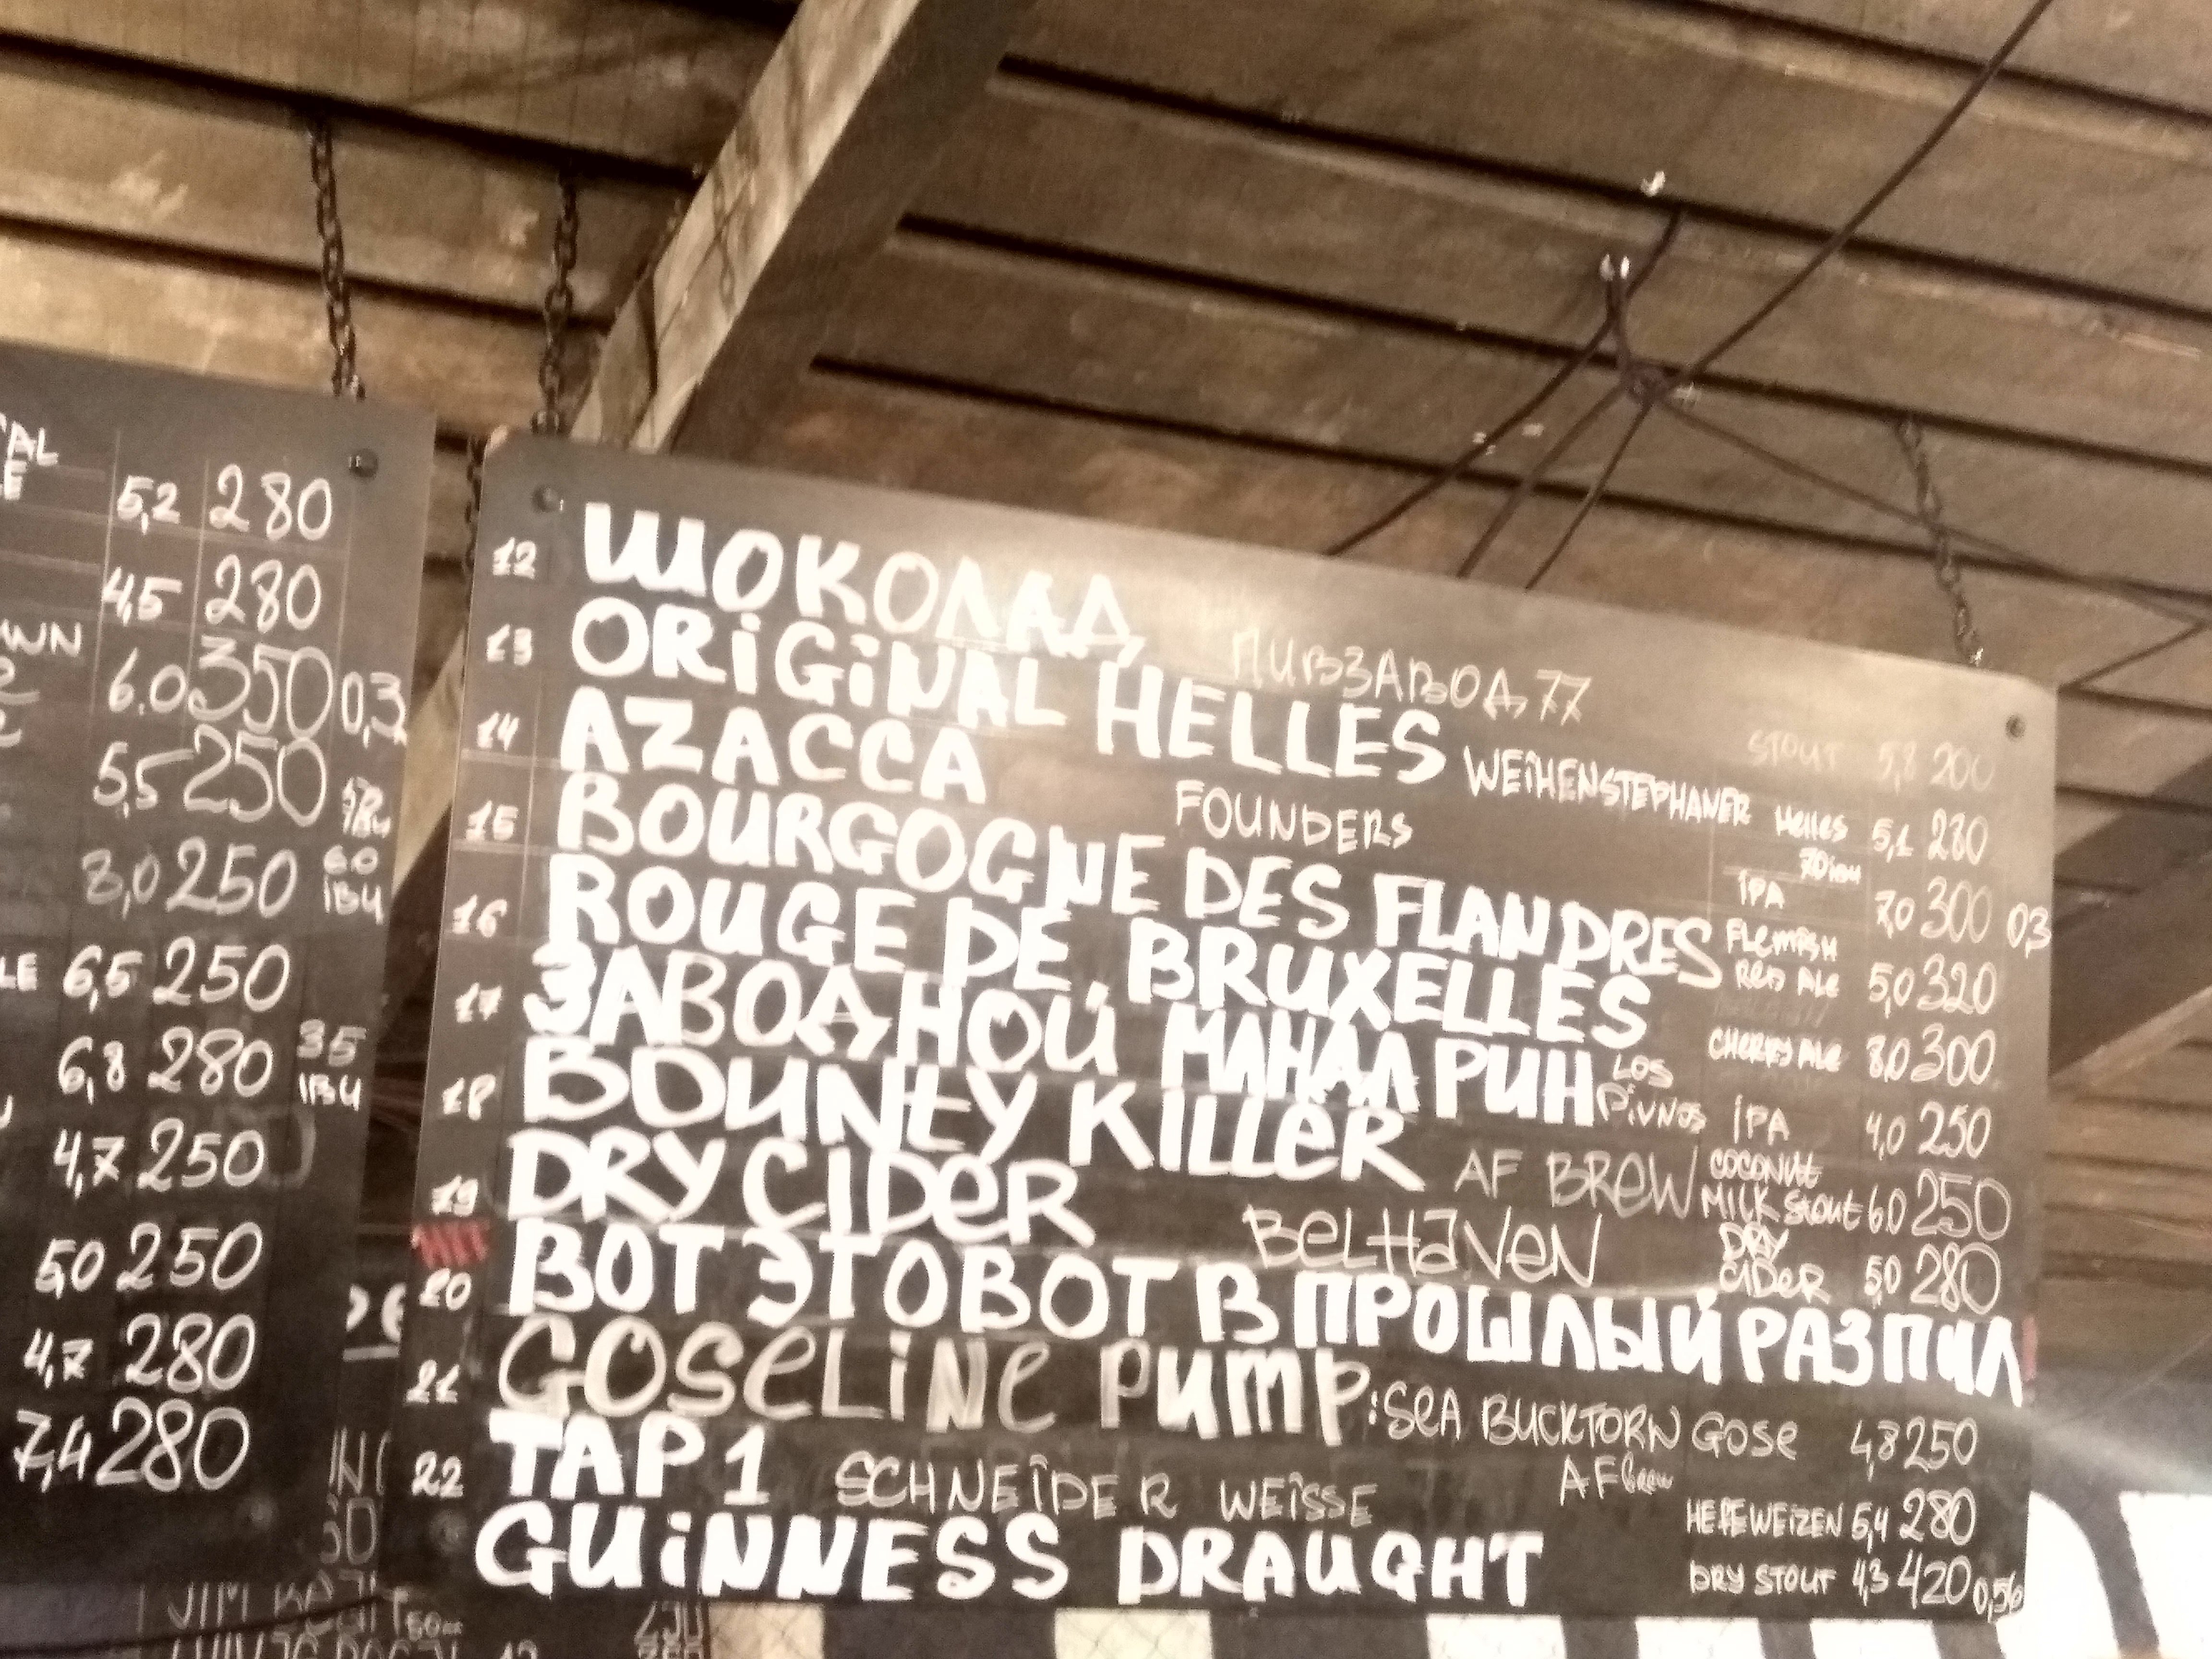 5,2 280
4,5 280
6.0 350 0,3
5,5 250
8,0 250 60 IBU
6,5 250
6,8 280 35 IBU
4,7 250
5,0 250
4,7 280
7,4 280
12 ШОКОЛАД ПИВЗАВОД 77 STOUT 5,8 200
13 ORIGINAL HELLES WEIHENSTEPHANER Helles 5,1 280
14 AZACCA FOUNDERS 70 IBU IPA 7,0 300 0,3
15 BOURGOGNE DES FLANDRES FLEMISH RED ALE 5,0 320
16 ROUGE DE BRUXELLES CHERRY ALE 8,0 300
17 ЗАВОДНОЙ МАНДАРИН LOS PIVNOS IPA 4,0 250
18 BOUNTY KILLER AF BREW COCONUT MILK Stout 6.0 250
19 DRY CIDER BELHAVEN DRY CIDER 5,0 280
ВОТ ЭТО ВОТ В ПРОШЛЫЙ РАЗ ПИЛ
20 GOSELINE PUMP: SEA BUCKTORN GOSE AF brew 4,8 250
21 TAP 1 SCHNEIDER WEISSE HEFEWEIZEN 5,4 280
22 GUINNESS DRAUGHT DRY STOUT 4,3 420 0,56